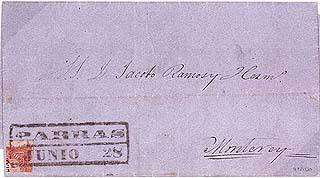 Jacobo Ramos y Herm.º
PARRAS
JUNIO 28
Monterey